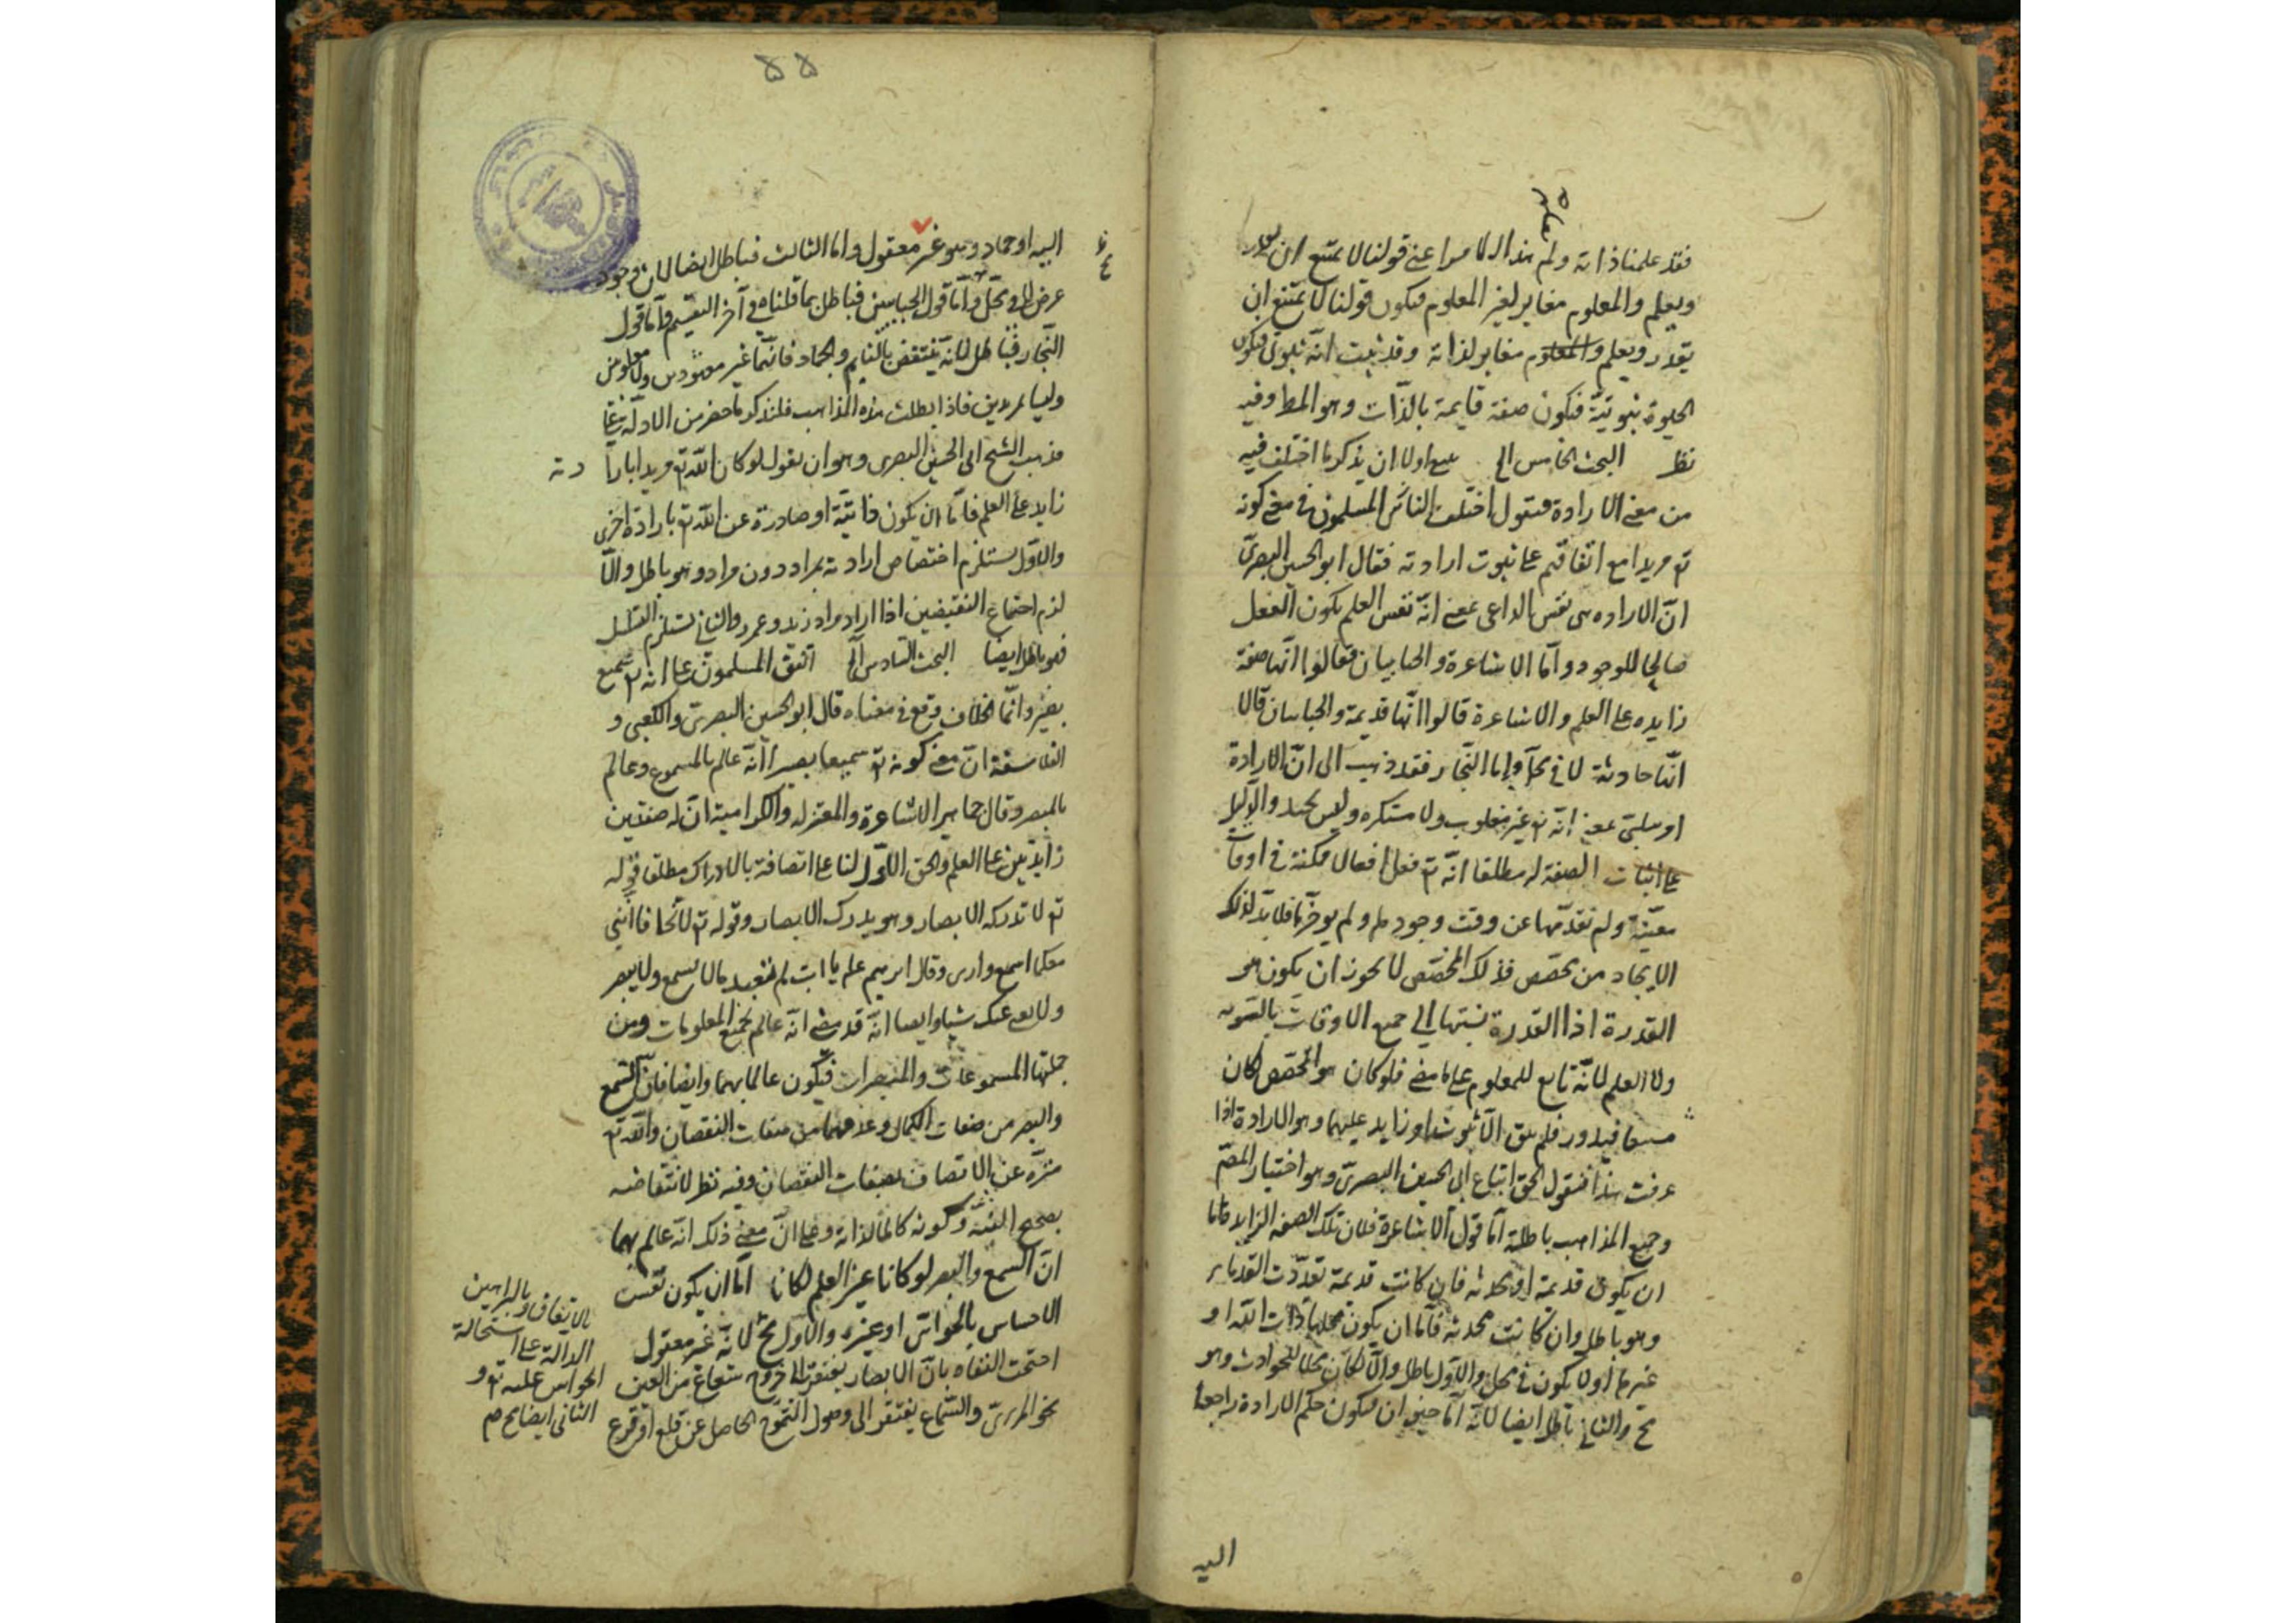 فقد علمنا ذاته ولم هذا الا امرا عنى قولنا لا يمتنع ان يقدر
ويعلم والمعلوم مغاير لغير المعلوم فيكون قولنا لا يمتنع ان
يقدر ويعلم والمعلوم مغاير لذاته وقد ثبت انه ثبوتى فيكون
الحيوة ثبوتيّة فيكون صفة قايمة بالذات وهو المط وفيه
نظر البحث الخامس الى اولا ان يذكر ما اختلف فيه
من معنى الارادة فنقول اختلف الناس المسلمون فى معنى كونه
تع مريدا مع اتفاقهم على ثبوت ارادته فقال ابو الحسين البصرىّ
انّ الاراده هى نفس الداعى بمعنى انّه نفس العلم بكون الفعل
صالحا للوجود وامّا الاشاعرة والجبابيان فقالوا انّها صفة
زايده على العلم والاشاعرة قالوا انّها قديمة والجبابيان قالا
انّها حادثة لا فى محلّ واما النجّار فقد ذهب الى انّ الارادة
امر سلبىّ بمعنى انّه تع غير مغلوب ولا مستكره وليس بجيد والدليل
على اثبات الصفة له مطلقا انّه تع فعل افعال ممكنة فى اوقات
معيّنة ولم تقدّمها عن وقت وجودها ولم يوخّرها فلا بدّ لذلك
الايجاد من مخصّص فذلك المخصّص لا يجوز ان يكون هو
القدرة اذا القدرة نسبتها الى جميع الاوقات بالسّويه
ولا العلم لانّه تابع للمعلوم على ما مضى فلو كان هو المخصّص لكان
متبوعا فيدور فلم يبق الّا ثبوت امر زايد عليهما وهو الارادة اذا
عرفت هذا فنقول الحق اتباع ابى الحسين البصرىّ وهو اختيار المصّ
وجميع المذاهب باطلة امّا قول الاشاعرة فلان تلك الصفه الزايد فامّا
ان يكون قديمة او محدثه فان كانت قديمة تعدّدت القدماء
وهو باطل وان كانت محدثه فامّا ان يكون محلها ذات اللّه او
غيرها او لا يكون فى محل والاوّل باطل والّا لكان محلا للحوادث وهو
مح والثانى باطل ايضا لانّه امّا حيّ فيكون حكم الارادة راجعا
اليه
۵۵
اليه او جماد وهو غير معقول واما الثالث فباطل ايضا لان وجود
عرض لا فى محلّ وامّا قول الجبابيين فباطل بما قلناه فى آخر التقسيم وامّا قول
النجّار فباطل لانّه ينتقض بالنايم والجماد فانّهما غير مقهورين ولا مغلوبين
وليسا مريدين فاذا بطلت هذه المذاهب فلنذكر ما حضر من الادلّة على
مذهب الشيخ ابى الحسين البصرى وهو ان يقول لو كان اللّه تع مريدا بارا
دته
زايد على العلم فامّا ان يكون ذاتيّة او صادرة عن اللّه تع بارادة اخرى
والاوّل يستلزم اختصاص ارادته بمراد دون مراد وهو باطل والّا
لزم اجتماع النقيضين اذا اراد مراد زيد وعمرو والثانى يستلزم التسلسل
فهو باطل ايضا البحث السّادس الى اتفق المسلمون على انه تع سميع
بصير وانّما الخلاف وقع فى معناه قال ابو الحسين البصرىّ والكعبى و
الفلاسفة انّ معنى كونه تع سميعا بصيرا انّه عالم بالمسموع وعالم
بالمبصر وقال جماهير الاشاعرة والمعتزله والكرامية انّ له صفتين
زايدتين على العلم والحق الاوّل لنا على اتصافه بالادراك مطلقا قوله
تع لا تدركه الابصار وهو يدرك الابصار وقوله تع لا تخافا اننى
معكما اسمع وارى وقال ابرهيم علم يا ابت لم تعبد ما لا يسمع ولا يبصر
ولا يغنى عنك شيا وايضا انّه قد مضى انّه عالم بجميع المعلومات ومن
جملتها المسموعات والمبصرات فيكون عالما بهما وايضا فانّ السّمع
والبصر من صفات الكمال وعدمهما من صفات النقصان واللّه تع
منزّه عن الاتصاف بصفات النقصان وفيه نظر لانتقاضه
بصحيح وكونه كاملا لذاته وعلى انّ معنى ذلك انّه عالم بهما
انّ السمع والبصر لو كانا غير العلم لكانا امّا ان يكون نفس
الاحساس بالحواسّ او غيره والاول مح لانّه غير معقول
بالاتفاق وبالبراهين
الدالة على استحالة
الحواس عليه تع و
الثانى ايضا مح
احتجت النفاه بانّ الابصار يفتقر الى خروج شعاع من العين
نحو المرىّ والسّماع يفتقر الى وصول التموّج الحاصل عن قلع او قرع